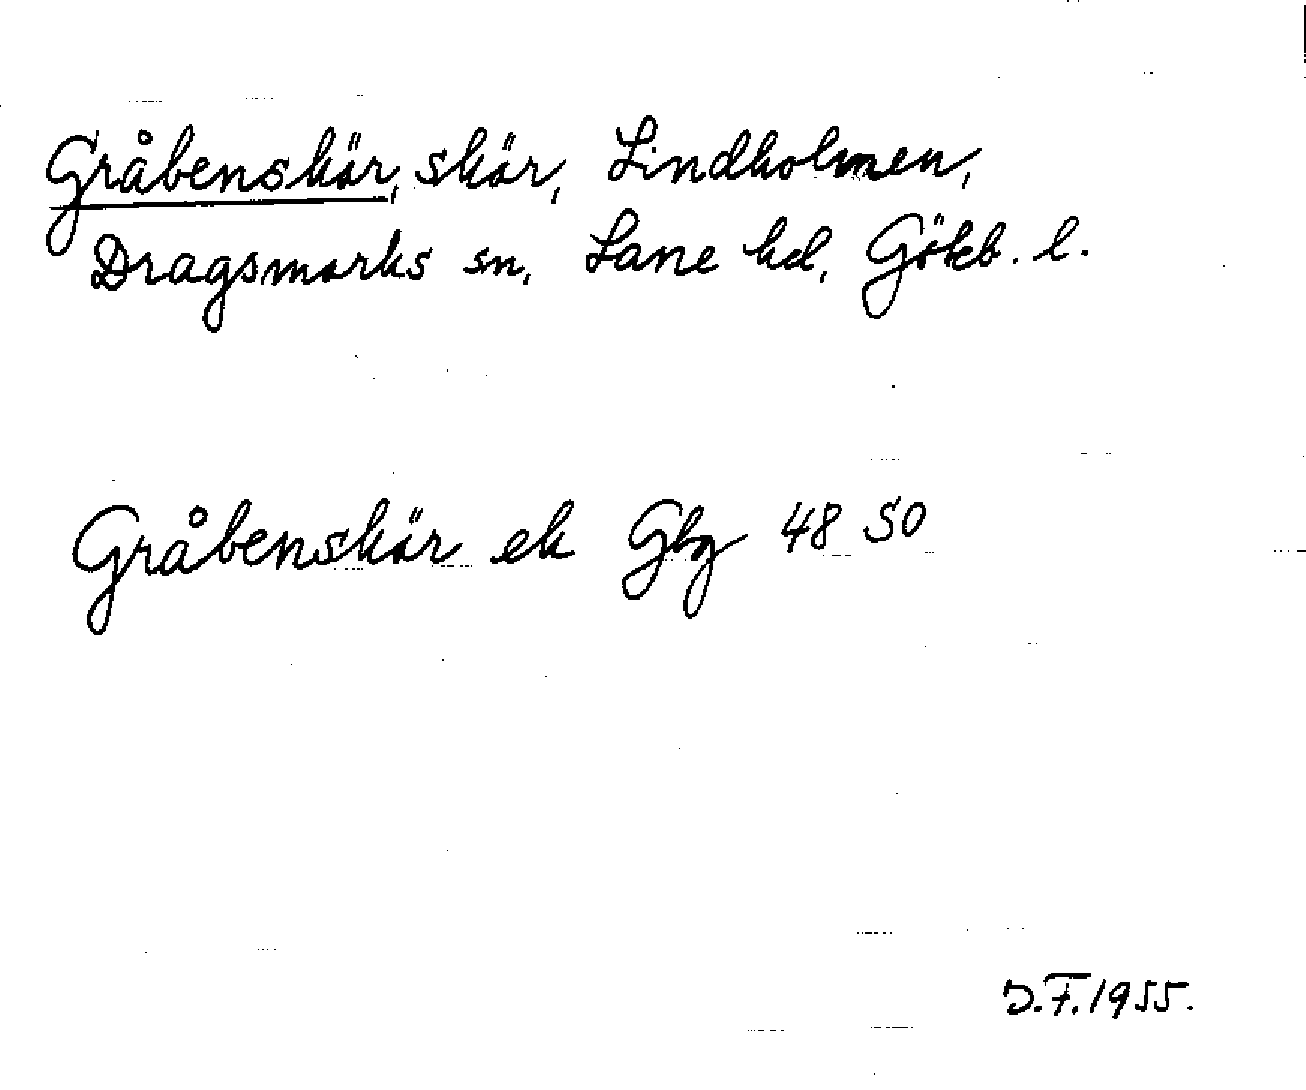 Gråbenskär, skär, Lindholmen,
Dragsmarks sn, Lane hd, Göteb. l.
Gråbenskär ek Gbg 48 SO
D.F. 1955.